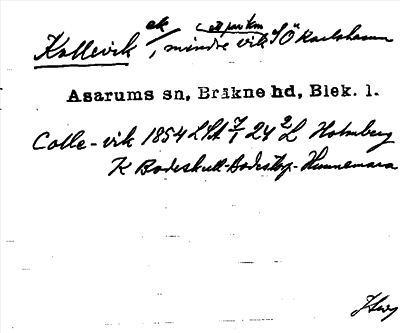 ek ett par km
Kollevik, mindre vik SÖ Karlshamn
Asarums sn, Bräkne hd, Blek. l.
Colle-vik 1854 LSA 7/1 24 2 L Holmberg
K Bodeskull-Bodestorp-Hunnemara